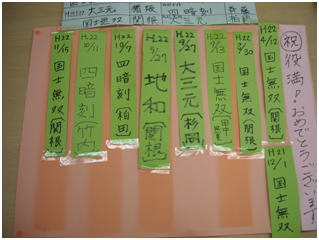 H21
11/17 大三元
国士無双
飯阪
四暗刻
大三元
祝役満!おめでとうございます!
H22
4/12 国士無双〔関根〕
H21
12/1 国士無双
H22
3/30 国士無双〔関根〕
国士無双
H22
9/27 大三元〔杉岡〕
H22
9/27 地和〔関根〕
H22
10/9 四暗刻〔柏田〕
H22
10/11 四暗刻〔竹内〕
H22
11/15 国士無双〔関根〕